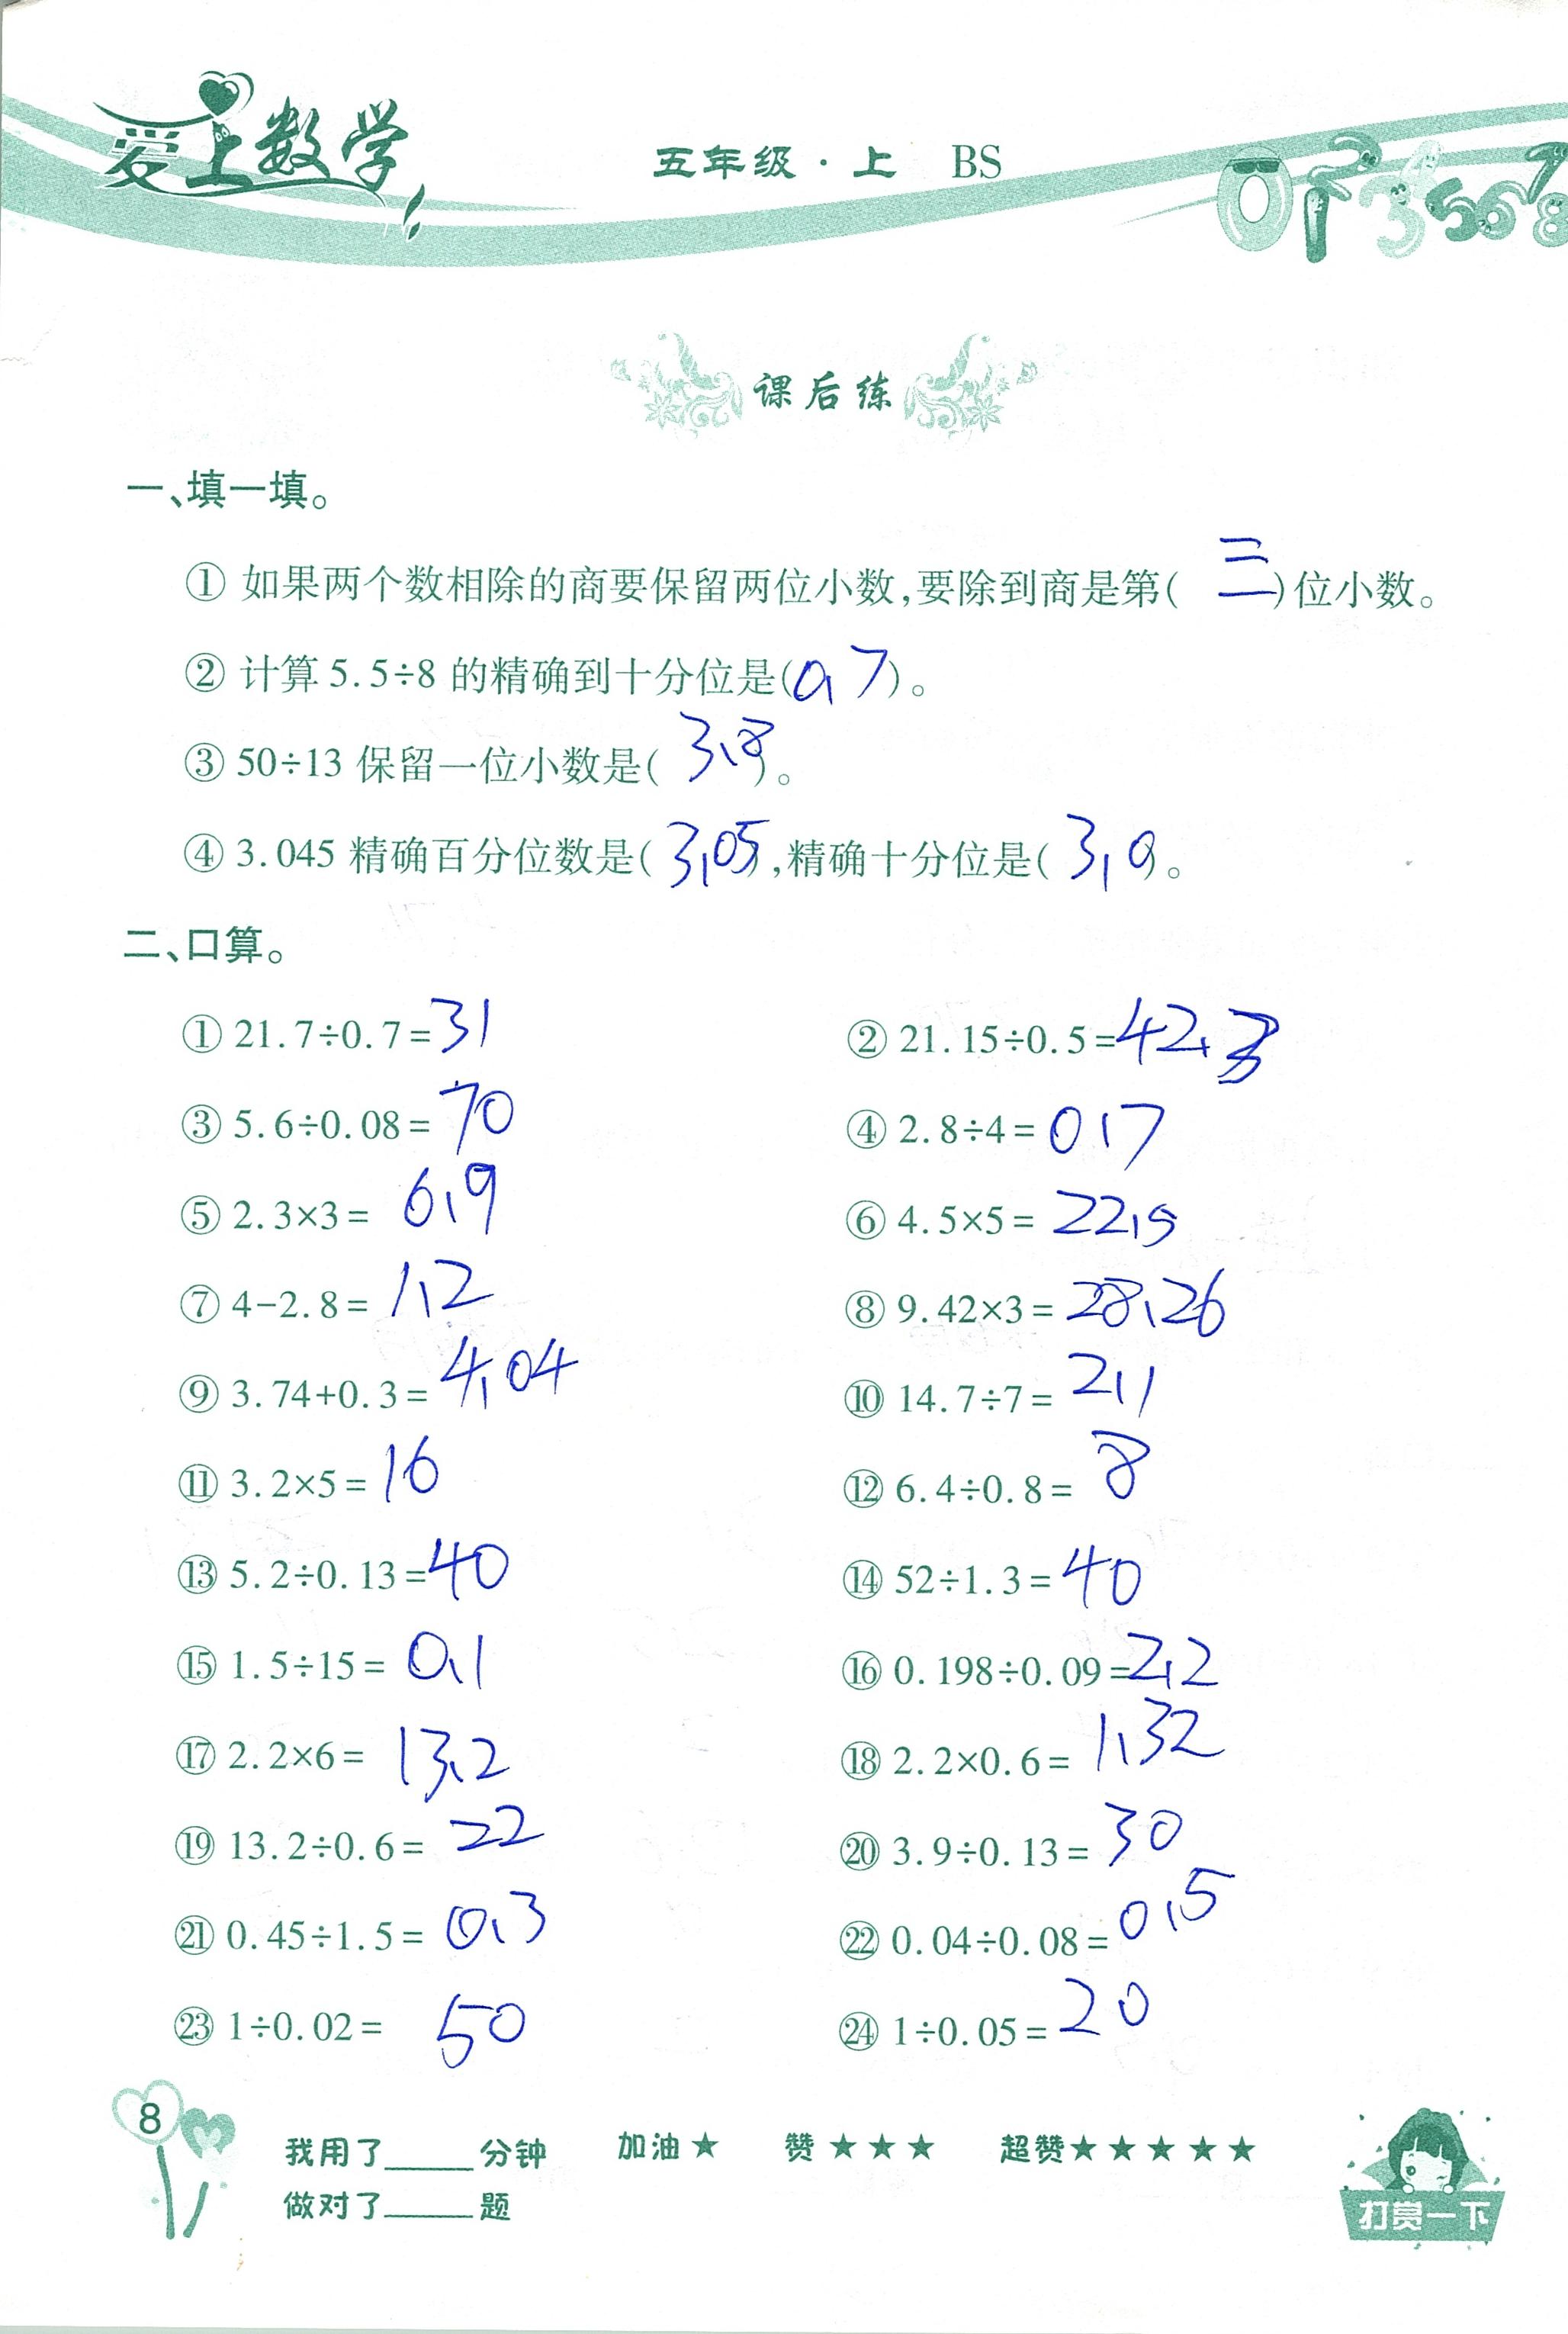 爱上数学
五年级·上 BS
课后练
一、填一填。
① 如果两个数相除的商要保留两位小数,要除到商是第(三)位小数。
② 计算 5.5÷8 的精确到十分位是(0.7)。
③ 50÷13 保留一位小数是(3.8)。
④ 3.045 精确百分位数是(3.05),精确十分位是(3.0)。
二、口算。
① 21.7÷0.7=31
② 21.15÷0.5=42.3
③ 5.6÷0.08=70
④ 2.8÷4=0.7
⑤ 2.3×3=6.9
⑥ 4.5×5=22.5
⑦ 4-2.8=1.2
⑧ 9.42×3=28.26
⑨ 3.74+0.3=4.04
⑩ 14.7÷7=2.1
⑪ 3.2×5=16
⑫ 6.4÷0.8=8
⑬ 5.2÷0.13=40
⑭ 52÷1.3=40
⑮ 1.5÷15=0.1
⑯ 0.198÷0.09=2.2
⑰ 2.2×6=13.2
⑱ 2.2×0.6=1.32
⑲ 13.2÷0.6=22
⑳ 3.9÷0.13=30
㉑ 0.45÷1.5=0.3
㉒ 0.04÷0.08=0.5
㉓ 1÷0.02=50
㉔ 1÷0.05=20
8
我用了____分钟 加油★ 赞★★★ 超赞★★★★★
做对了____题
打赏一下